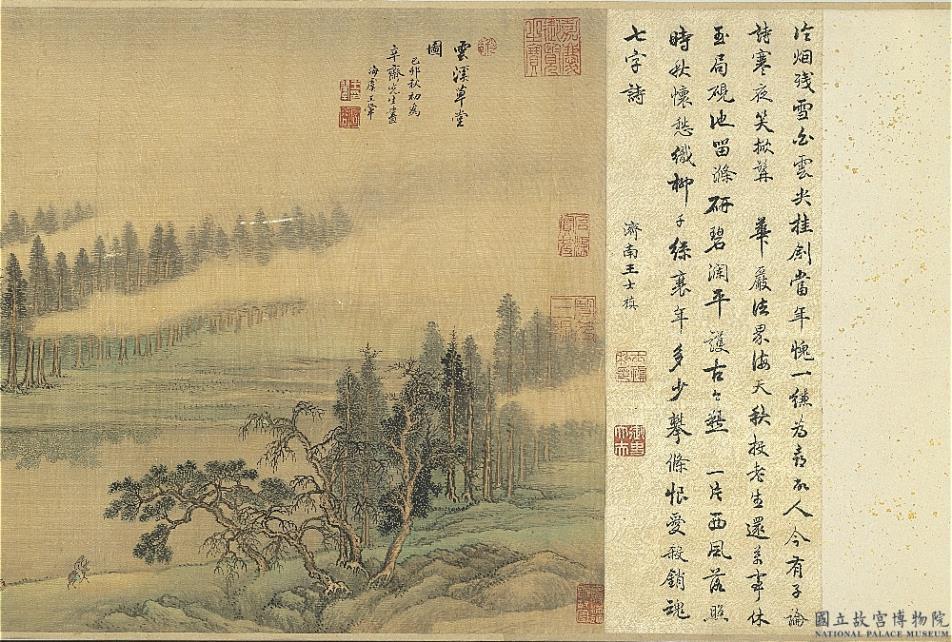 冷烟残雪白雲尖挂劍當年愧一縑為報故人今有子論
詩寒夜笑掀髯 華嚴法界海天秋投老生還萬事休
玉局硯池留滌研碧瀾平護古今愁 一片西風落照
時秋懷愁織柳千絲衰年多少攀條恨愛殺銷魂
七字詩
濟南王士禛
雲溪草堂
圖
己卯秋初為
辛齋先生畫
海虞王翬
嘉慶御覽之寶
國立故宮博物院
NATIONAL PALACE MUSEUM